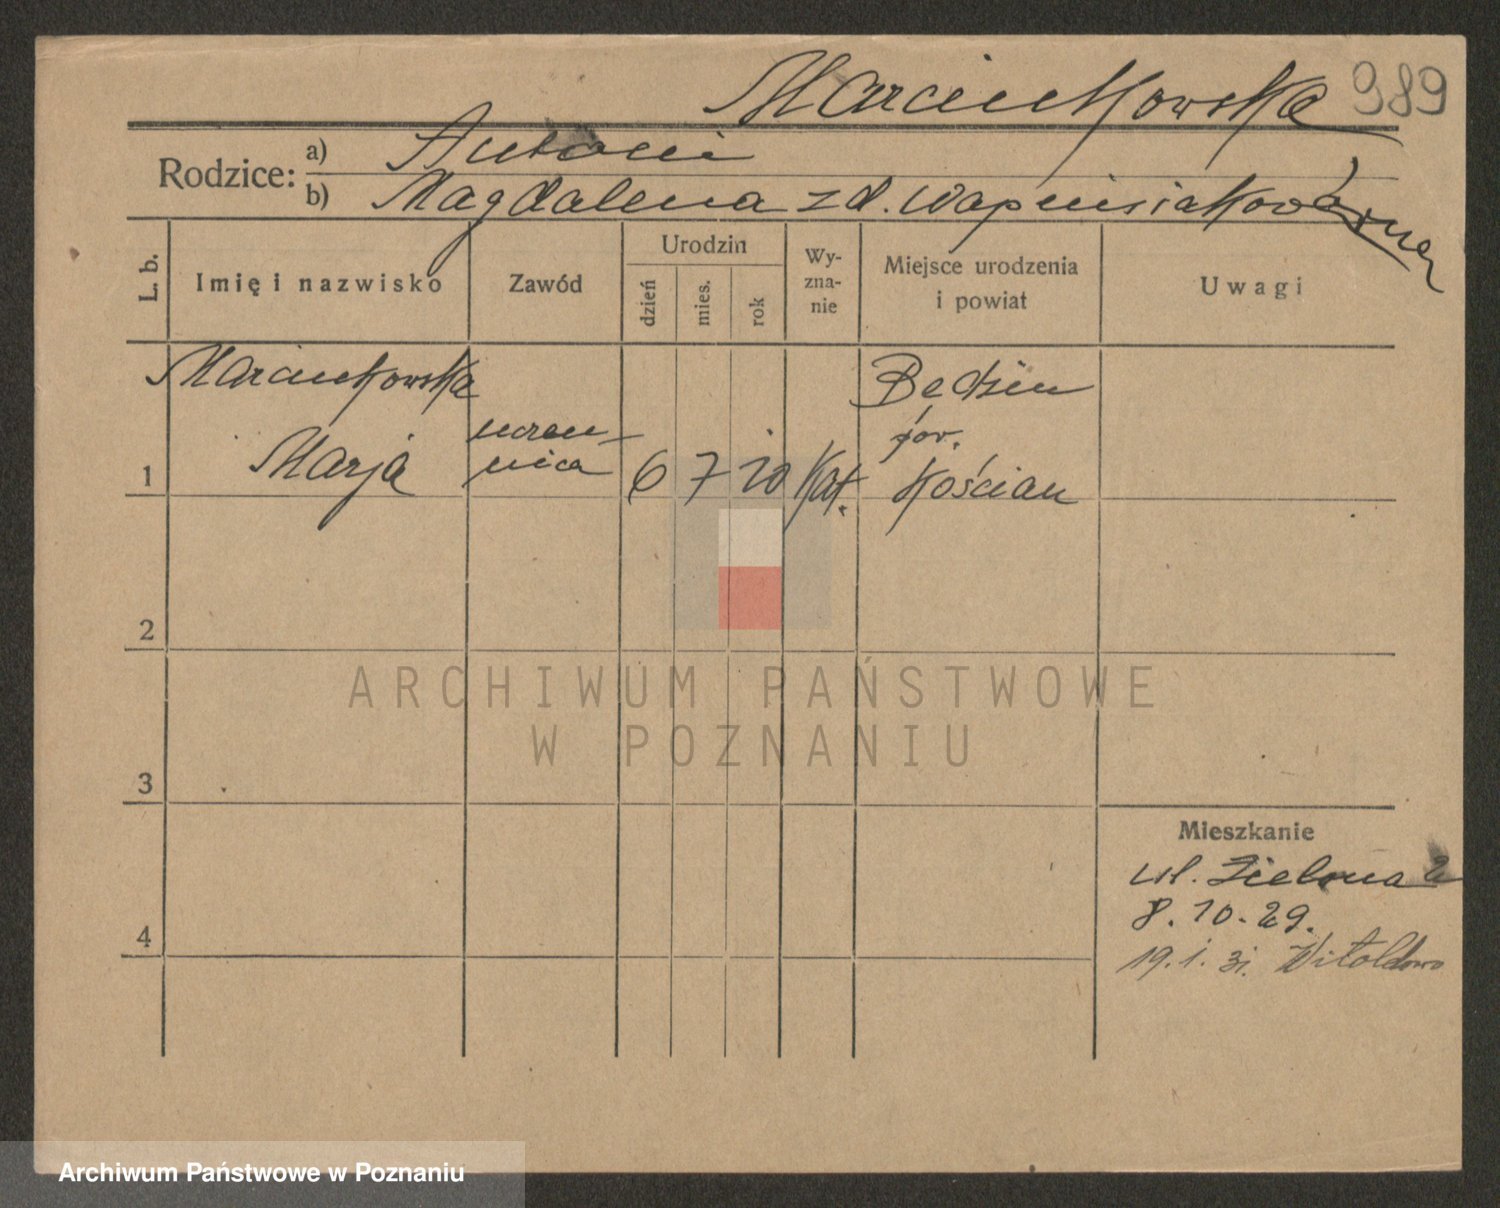 Marcinkowska 989
Rodzice: a) Antoni
b) Magdalena zd. Wapnisiaków
L. b. Imię i nazwisko Zawód Urodzin dzień mies. rok Wy-zna-nie Miejsce urodzenia i powiat Uwagi
Marcinkowska Będzin
uczen- pow.
1 Marja nica 6 7 10 Kat. Kościan
2
3
Mieszkanie
ul. Zielona 2
8.10.29.
4
19.1.31. Witoldowo
ARCHIWUM PAŃSTWOWE
W POZNANIU
Archiwum Państwowe w Poznaniu